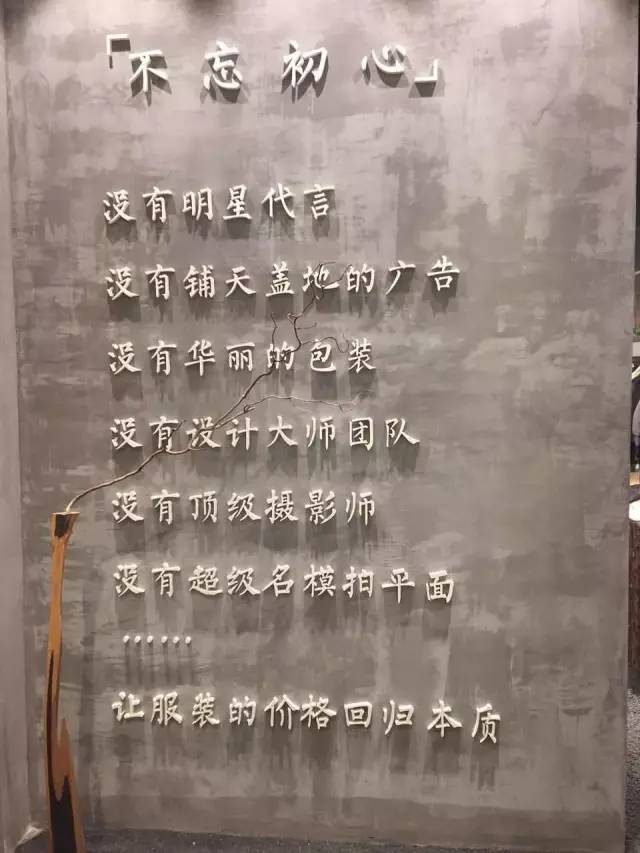 「不忘初心」
没有明星代言
没有铺天盖地的广告
没有华丽的包装
没有设计大师团队
没有顶级摄影师
没有超级名模拍平面
……
让服装的价格回归本质